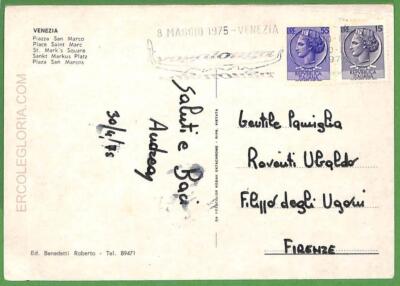 VENEZIA
Piazza San Marco
Place Saint Marc
St. Mark's Square
Sankt Markus Platz
Plaza San Marcos
8 MAGGIO 1975 - VENEZIA
LIRE 55
LIRE 15
Saluti e Baci
Andrea
30/4/75
Gentile Famiglia
Roventi Ubaldo
F.lippo degli Ugoni
FIRENZE
Ed. Benedetti Roberto - Tel. 89471
ERCOLEGLORIA.COM